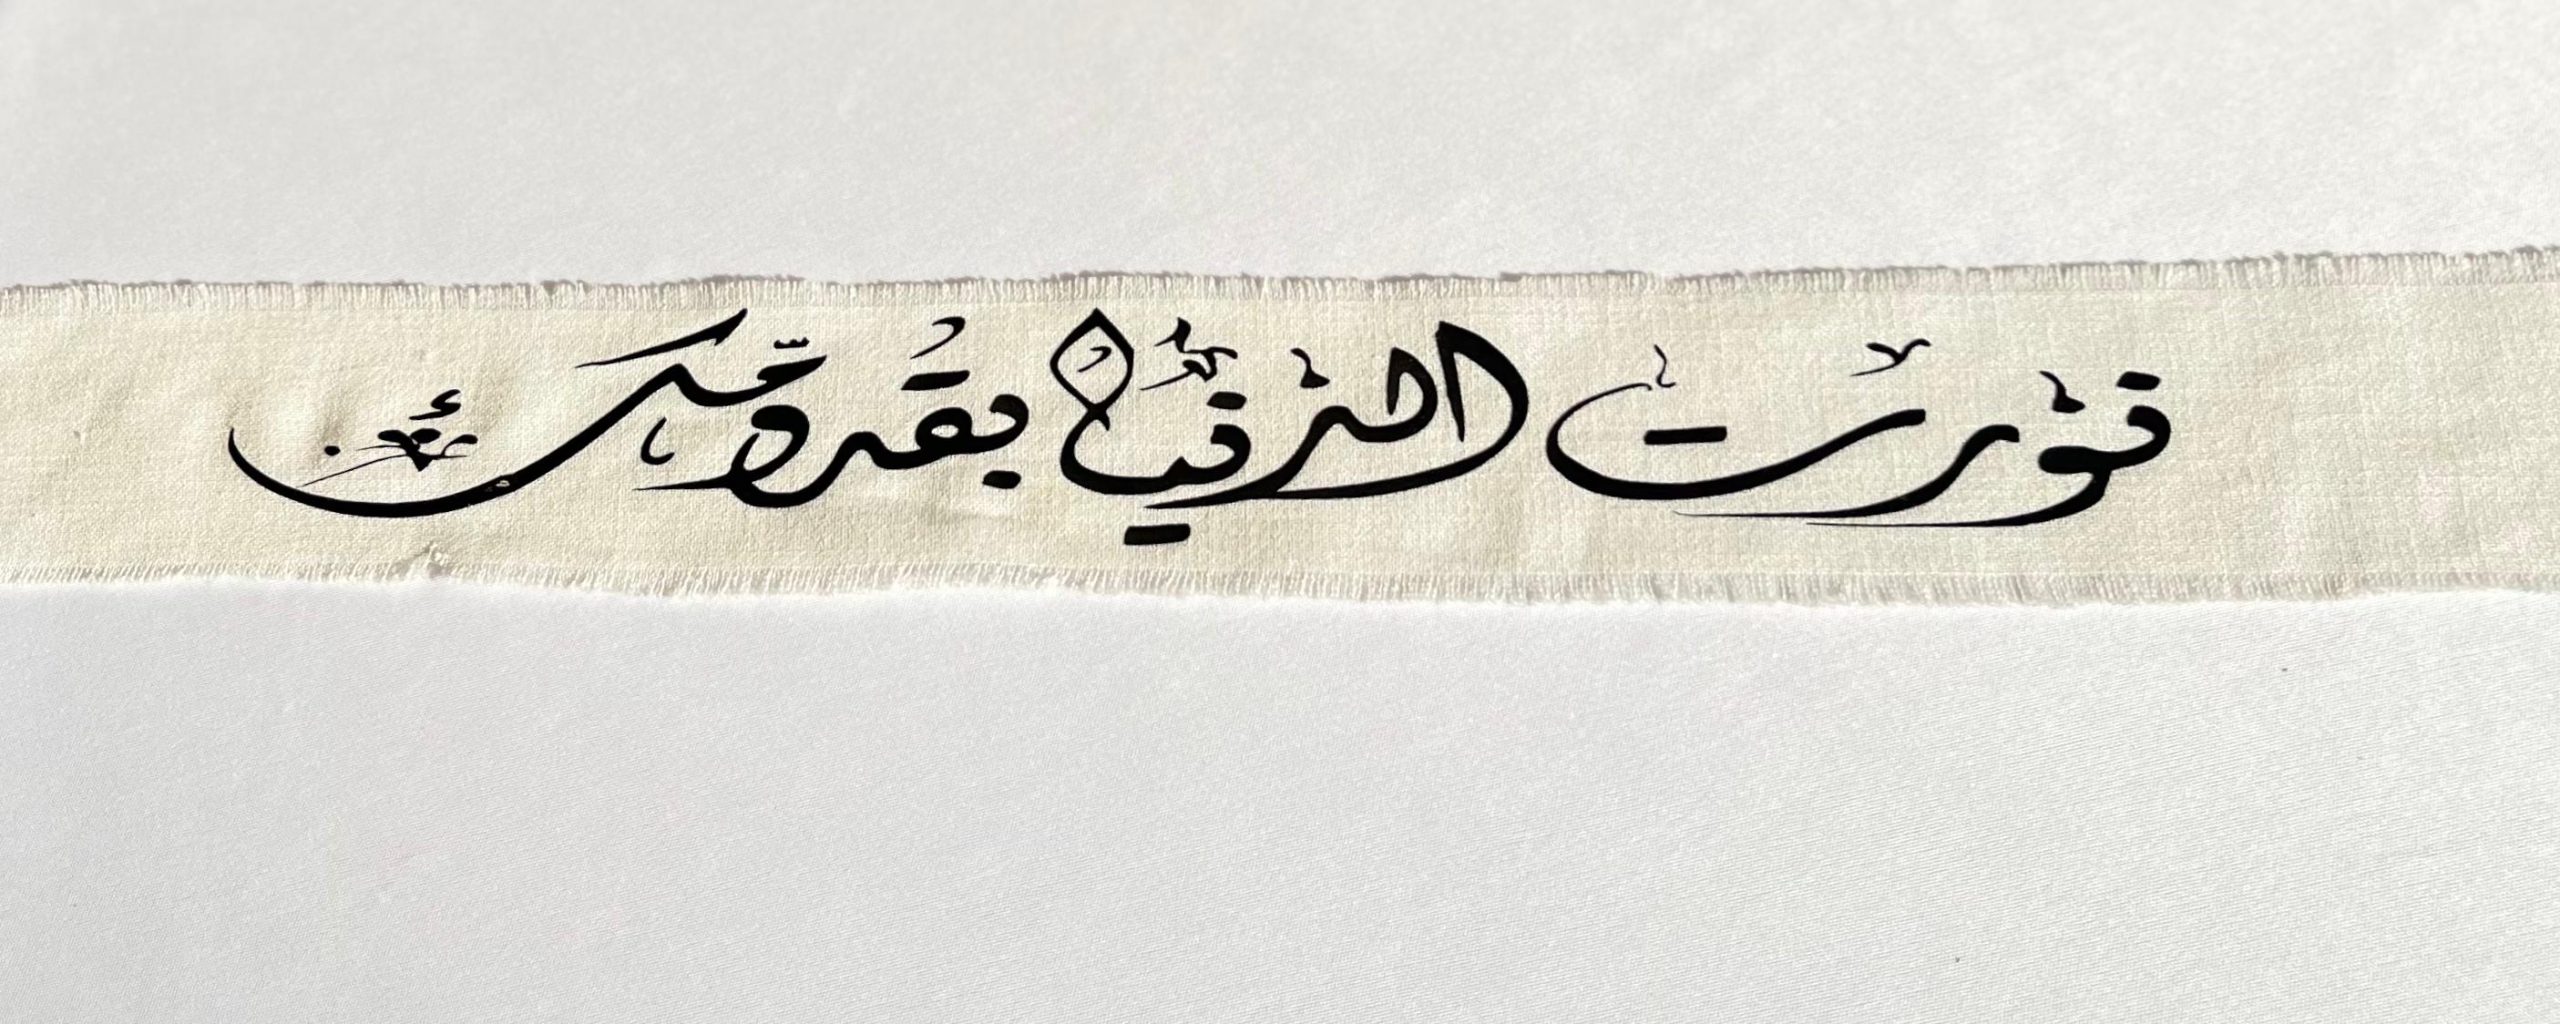 نورت الدنيا بقدومك